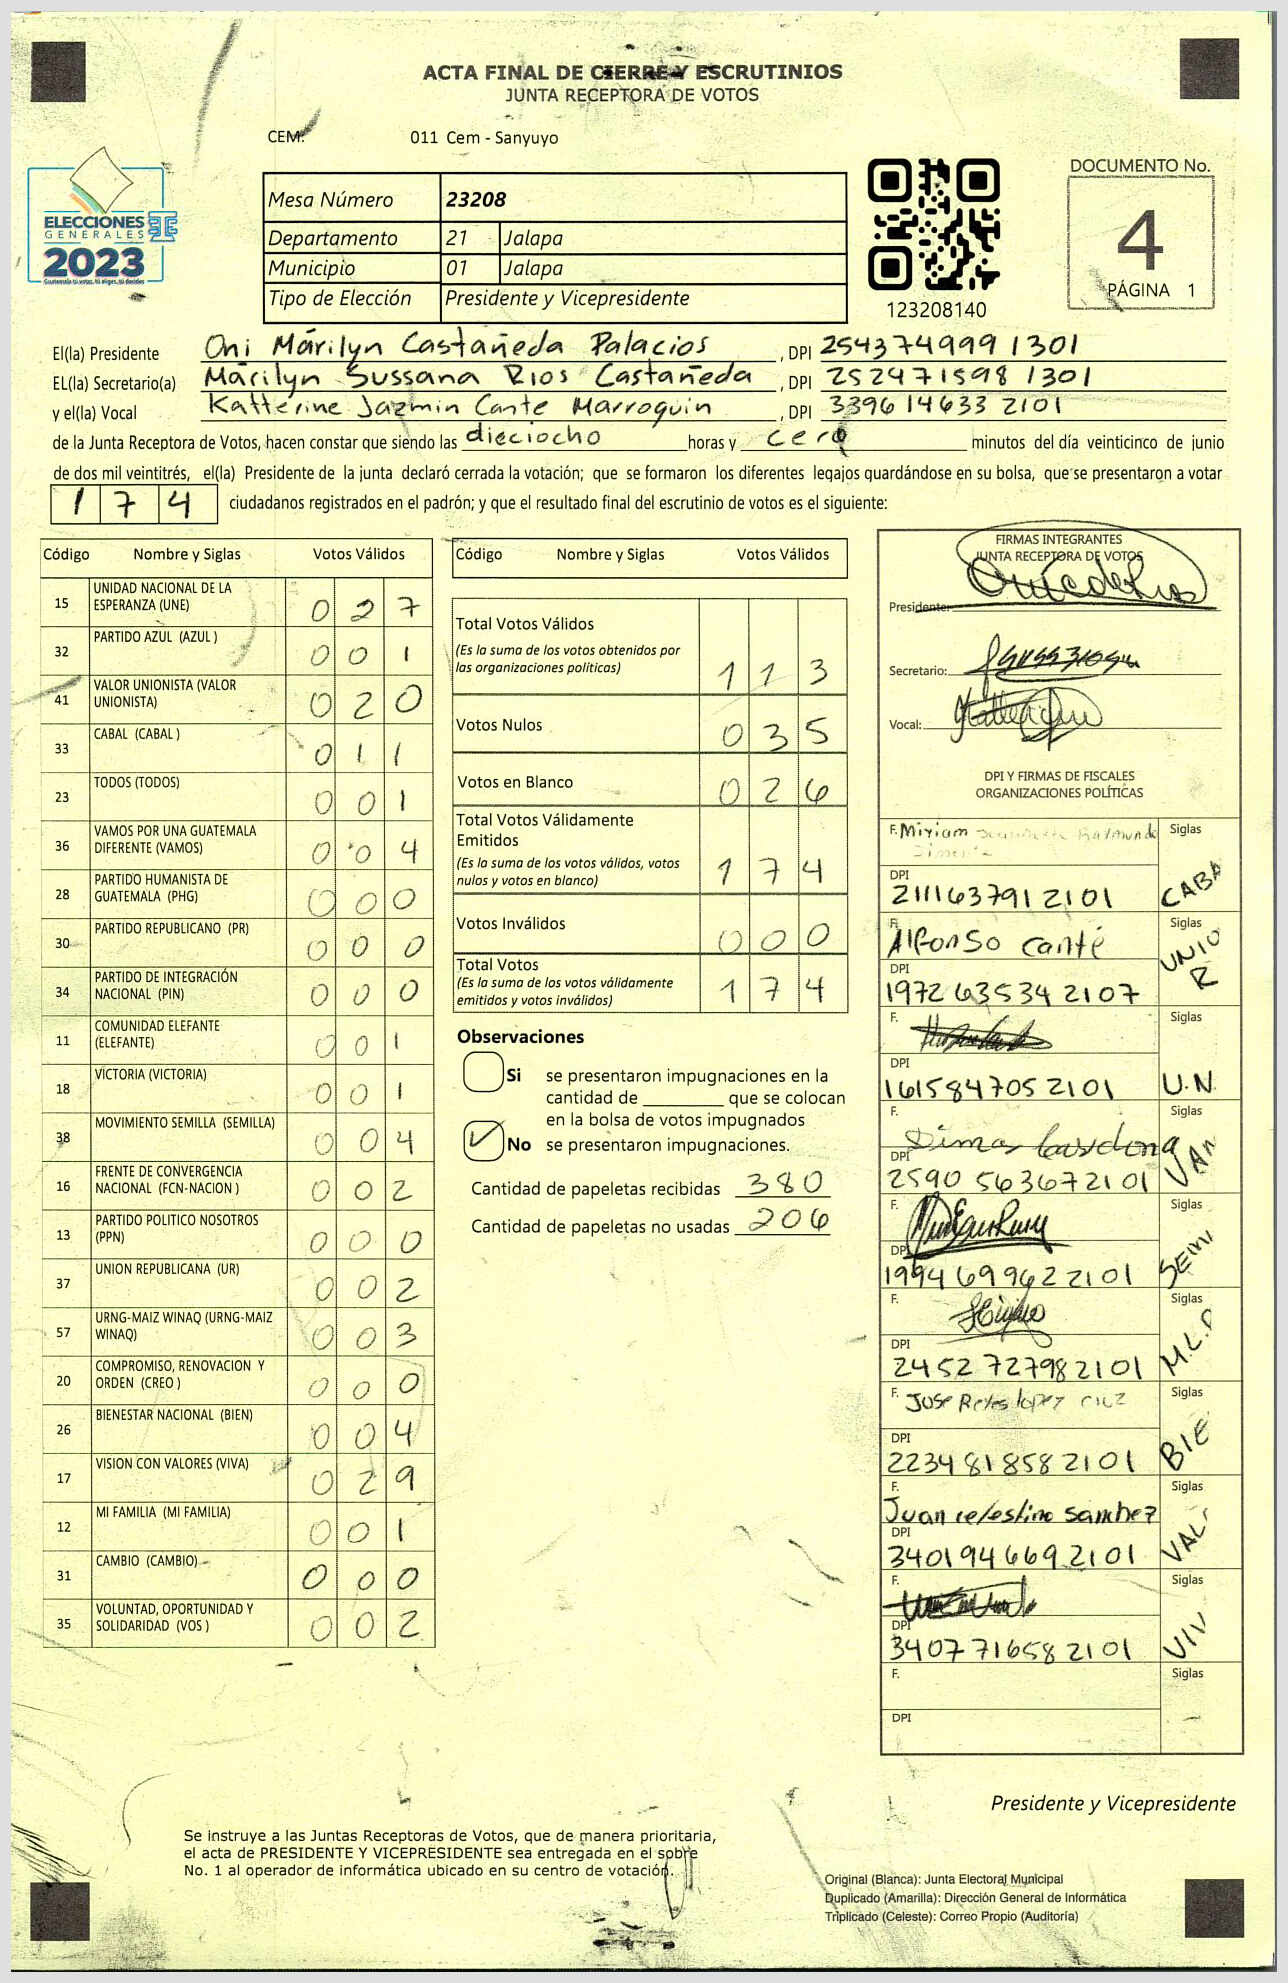 ACTA FINAL DE CIERRE Y ESCRUTINIOS
JUNTA RECEPTORA DE VOTOS
CEM: 011 Cem - Sanyuyo
ELECCIONES
GENERALES
2023
Mesa Número 23208
Departamento 21 Jalapa
Municipio 01 Jalapa
Tipo de Elección Presidente y Vicepresidente
123208140
DOCUMENTO No.
4
PÁGINA 1
El(la) Presidente Oni Márilyn Castañeda Palacios, DPI 254374999 1301
EL(la) Secretario(a) Marilyn Sussana Rios Castañeda, DPI 252471598 1301
y el(la) Vocal Katterine Jazmin Cante Marroquin, DPI 339614633 2101
de la Junta Receptora de Votos, hacen constar que siendo las dieciocho horas y cero minutos del día veinticinco de junio
de dos mil veintitrés, el(la) Presidente de la junta declaró cerrada la votación; que se formaron los diferentes legajos quardándose en su bolsa, que se presentaron a votar
174 ciudadanos registrados en el padrón; y que el resultado final del escrutinio de votos es el siguiente:
Código Nombre y Siglas Votos Válidos
15 UNIDAD NACIONAL DE LA ESPERANZA (UNE) 0 2 7
32 PARTIDO AZUL (AZUL ) 0 0 1
41 VALOR UNIONISTA (VALOR UNIONISTA) 0 2 0
33 CABAL (CABAL ) 0 1 1
23 TODOS (TODOS) 0 0 1
36 VAMOS POR UNA GUATEMALA DIFERENTE (VAMOS) 0 0 4
28 PARTIDO HUMANISTA DE GUATEMALA (PHG) 0 0 0
30 PARTIDO REPUBLICANO (PR) 0 0 0
34 PARTIDO DE INTEGRACIÓN NACIONAL (PIN) 0 0 0
11 COMUNIDAD ELEFANTE (ELEFANTE) 0 0 1
18 VICTORIA (VICTORIA) 0 0 1
38 MOVIMIENTO SEMILLA (SEMILLA) 0 0 4
16 FRENTE DE CONVERGENCIA NACIONAL (FCN-NACION ) 0 0 2
13 PARTIDO POLITICO NOSOTROS (PPN) 0 0 0
37 UNION REPUBLICANA (UR) 0 0 2
57 URNG-MAIZ WINAQ (URNG-MAIZ WINAQ) 0 0 3
20 COMPROMISO, RENOVACION Y ORDEN (CREO ) 0 0 0
26 BIENESTAR NACIONAL (BIEN) 0 0 4
17 VISION CON VALORES (VIVA) 0 2 9
12 MI FAMILIA (MI FAMILIA) 0 0 1
31 CAMBIO (CAMBIO) 0 0 0
35 VOLUNTAD, OPORTUNIDAD Y SOLIDARIDAD (VOS ) 0 0 2
Código Nombre y Siglas Votos Válidos
Total Votos Válidos
(Es la suma de los votos obtenidos por
las organizaciones políticas) 1 1 3
Votos Nulos 0 3 5
Votos en Blanco 0 2 6
Total Votos Válidamente
Emitidos
(Es la suma de los votos válidos, votos
nulos y votos en blanco) 1 7 4
Votos Inválidos 0 0 0
Total Votos
(Es la suma de los votos válidamente
emitidos y votos inválidos) 1 7 4
Observaciones
Si se presentaron impugnaciones en la
cantidad de ________ que se colocan
en la bolsa de votos impugnados
No se presentaron impugnaciones.
Cantidad de papeletas recibidas 380
Cantidad de papeletas no usadas 206
FIRMAS INTEGRANTES
JUNTA RECEPTORA DE VOTOS
Presidente:
Secretario:
Vocal:
DPI Y FIRMAS DE FISCALES
ORGANIZACIONES POLÍTICAS
F. Miriam Siglas
DPI
211163791 2101 CABA
F. Alfonso Canté Siglas
DPI
1972 63534 2107 UNIO R
F. Siglas
DPI
161584705 2101 U.N.
F. Dimas Siglas
DPI
2590 56367 2101 VAM
F. Siglas
DPI
1994 69962 2101 SEMI
F. Siglas
DPI
2452 72798 2101 M.L.P
F. Jose Reyes lopez cruz Siglas
DPI
2234 81858 2101 BIE
F. Juan celestino sanchez Siglas
DPI
340194669 2101 VAL
F. Siglas
DPI
340771658 2101 VIV
F. Siglas
DPI
Presidente y Vicepresidente
Se instruye a las Juntas Receptoras de Votos, que de manera prioritaria,
el acta de PRESIDENTE Y VICEPRESIDENTE sea entregada en el sobre
No. 1 al operador de informática ubicado en su centro de votación.
Original (Blanca): Junta Electoral Municipal
Duplicado (Amarilla): Dirección General de Informática
Triplicado (Celeste): Correo Propio (Auditoría)